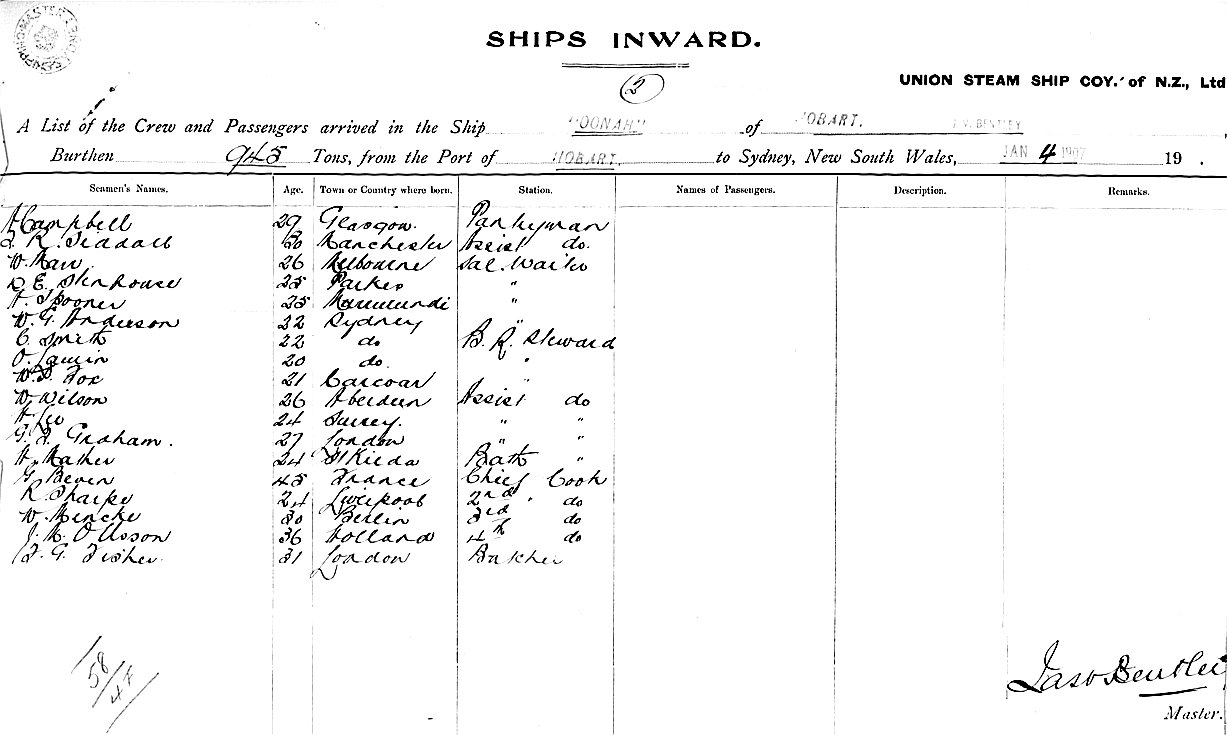 SHIPS INWARD.
2
UNION STEAM SHIP COY. of N.Z., Ltd
A List of the Crew and Passengers arrived in the Ship "OONAH" of HOBART. BENTLEY
Burthen 945 Tons, from the Port of HOBART. to Sydney, New South Wales, JAN 4 1907 19 .
Seamen's Names. Age. Town or Country where born. Station. Names of Passengers. Description. Remarks.
A Campbell 29 Glasgow Pantryman
R. Siddall 30 Manchester Assist do.
W. 26 Melbourne Sal. Waiter
E. Stenhouse 25 Parkes "
A. Spooner 25 Murrurundi "
W. G. Anderson 22 Sydney "
C. Smith 22 do B. R. Steward
O. 20 do "
W. Fox 21 Carcoar "
W. Wilson 26 Aberdeen Assist do
A. Lee 24 Surrey. " "
G. Graham. 27 London " "
A. Mather 24 St Kilda Bath "
G. Beven 45 France Chief Cook
R. Sharpe 24 Liverpool 2nd " do
W. Mencke 30 Berlin 3rd do
J. M. Olsson 36 Holland 4th do
F. G. Fisher. 31 London Butcher
58/47
Jas Bentley
Master.